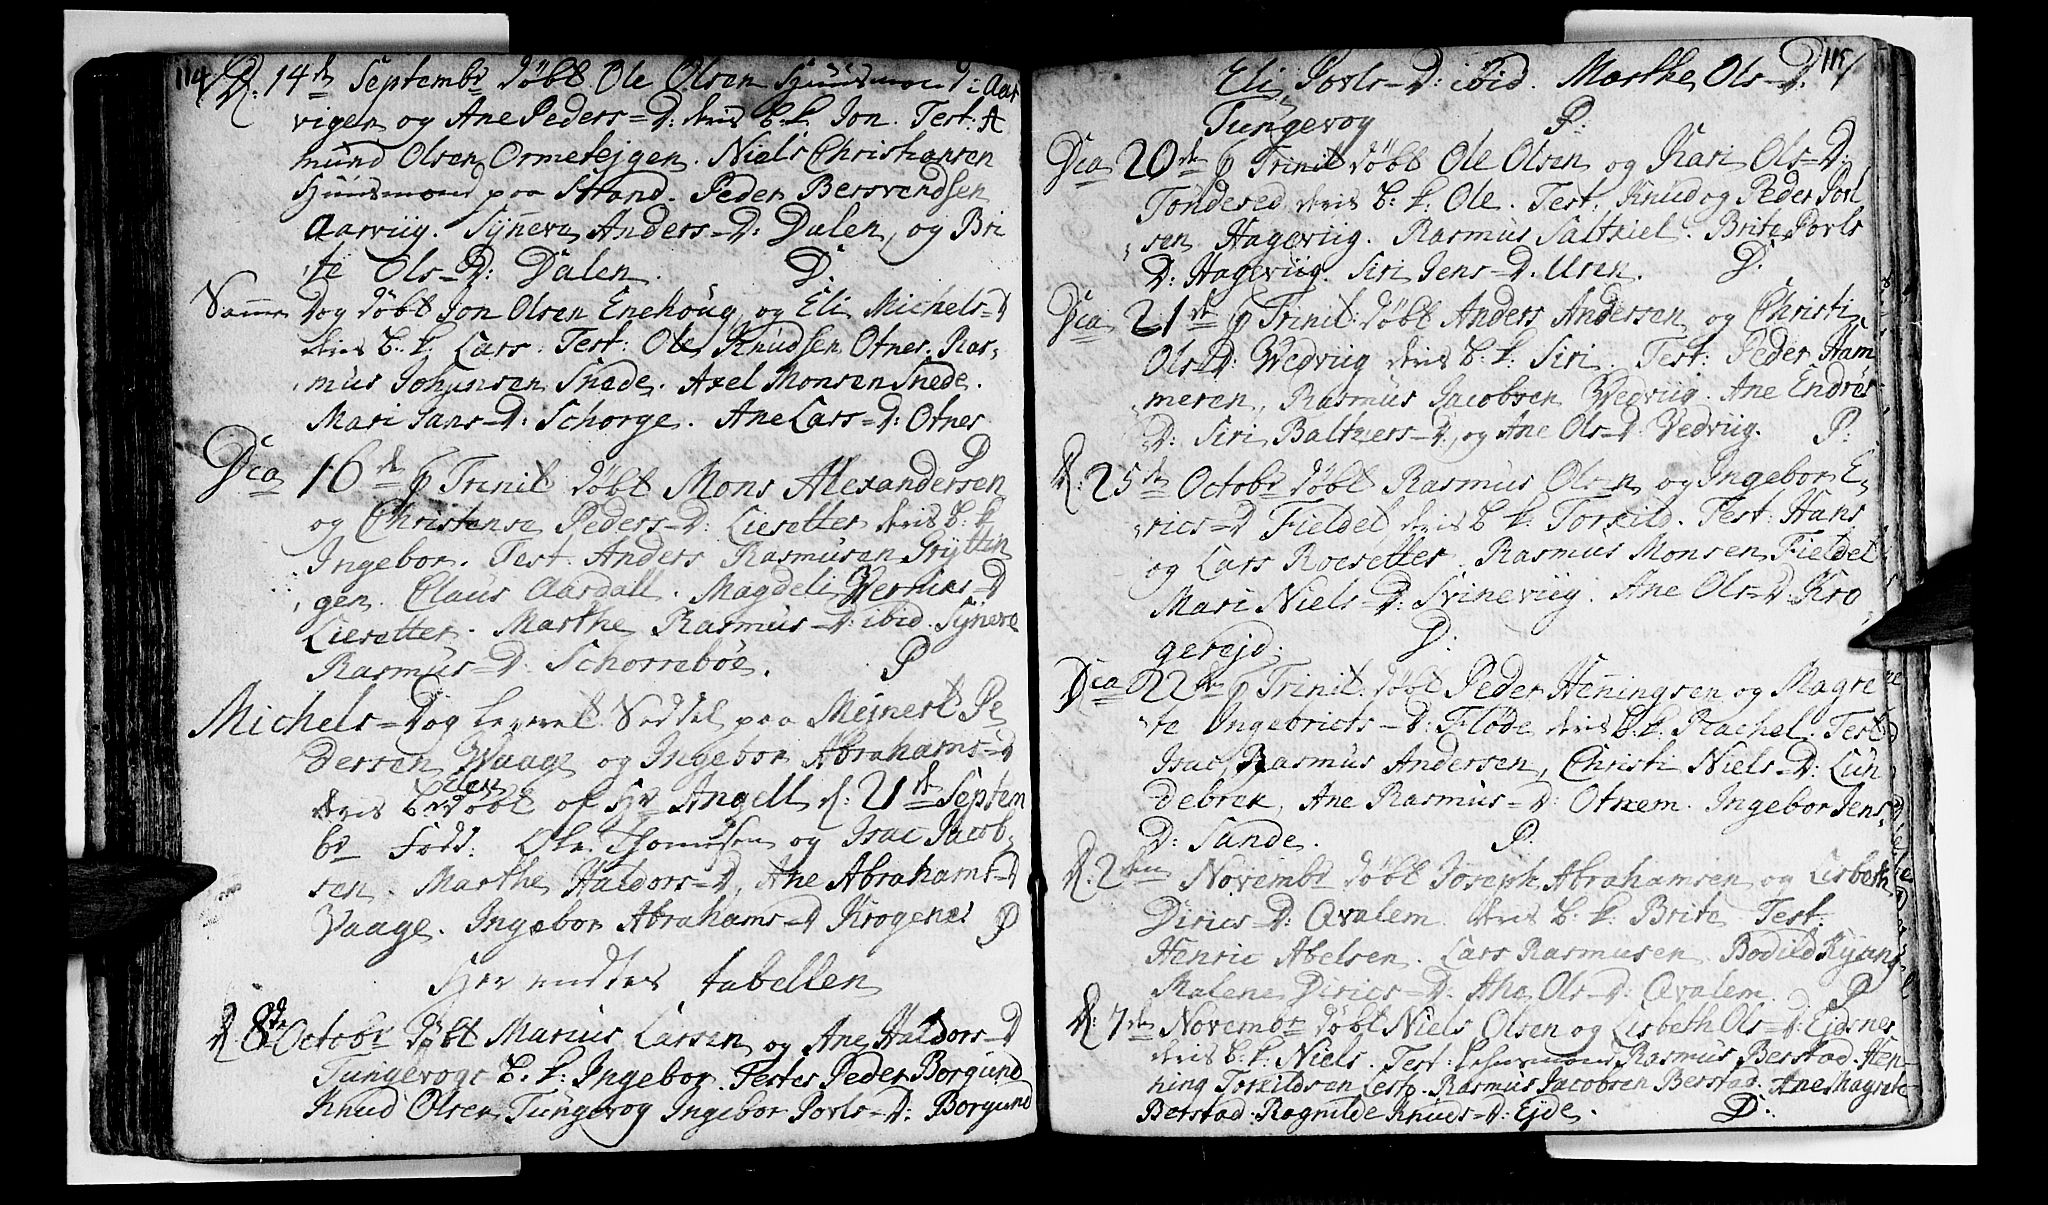 114
D. 14de Septembr døbt Ole Olsen Huusmand i Aar
vigen og Ane Peders=D: deris b. k. Jon. Test: A
mund Olsen Ormetejgen. Niels Christiansen
Huusmand paa Strand. Peder Bersvendsen
Aarviig. Syneva Anders=D: Dalen, og Bri
te Ols=D: Dalen. D.
Samme Dag døbt Jon Olsen Enehoug, og Eli Michels=D
deris b. k. Lars. Test: Ole Knudsen Otnes. Ras
mus Johansen Snede. Axel Monsen Snede.
Mari Jans=D: Schorge. Ane Lars=D: Otnes
P
Dca 16de p Trinit døbt Mons Alexandersen
og Christense Peders=D: Lisetter deris b. k
Ingebor. Test Anders Rasmusen Gryttin
gen. Claus Aardall. Magdeli Wernis=D
Liesetter. Marthe Rasmus=D: ibid. Synere
Rasmus=D: Schorreböe. P
Michels=Dag leveret Seddel paa Mejnert Pe
dersen Waage og Ingebor Abrahams=D
deris b. Elen døbt af Hr Angell d: 21de Septem
br Fadd: Ole Thomesen og Isac Jacob
sen. Marthe Haldors=D, Ane Abrahams=D
Vaage. Ingebor Abrahams=D Krogenes P
Her endtes tabellen
D. 8de Octobr døbt Marius Larsen og Ane Haldors=D
Tungevogs b. k: Ingebor. Testes Peder Borgund
Knud Olsen Tungevog Ingebor Povls=D: Borgund
115
Eli Povls=D: ibid. Marthe Ols=D:
Tungevog P:
Dca 20de p Trinit døbt Ole Olsen og Kari Ols=D:
Tondered deris b. k. Ole. Test: Knud og Peder Povl
sen Hageviig. Rasmus Saltkiel. Brite Povls
D: Hageviig. Siri Jens=D. Ursen. D.
Dca 21de p Trinit: døbt Anders Andersen og Christi
Ols=D: Wedviig deris b. k: Siri. Test: Peder Ham
meren, Rasmus Jacobsen Wedviig. Ane Endres
D: Siri Baltzers=D, og Ane Ols=D: Vedviig. P:
D. 25de Octobr døbt Rasmus Olsen og Ingebor E
rics=D Fieldet deris b k: Torkild. Test: Hans
og Lars Roesetter. Rasmus Monsen Fieldet
Mari Niels=D: Svineviig. Ane Ols=D: Kro
gerejd. D.
Dca 22de p Trinit: døbt Peder Henningsen og Magre
te Ingebricts=D: Flöde deris b. k. Rachel. Test
Isac, Rasmus Andersen, Christi Niels=D: Lun
debrek, Ane Rasmus=D: Otnem. Ingebor Jens
D: Sande. P.
D. 2den Novembr døbt Joseph Abrahamsen og Lisbeth
Dirics=D: Qvalem deris b. k. Brite. Test:
Henric Abelsen. Lars Rasmusen. Bodild
Malene Dirics=D. Ols=D: Qvalem. P
D: 7de Novembr døbt Niels Olsen og Lisbeth Ols=D: Ejdsnes
deris b. k. Niels. Test: Rasmus Berstad. Hen
ning Torkildsen Leste. Rasmus Jacobsen Berstad. Ane Magrete
Berstad. Ragnilde Knuds=D: Ejde. D.